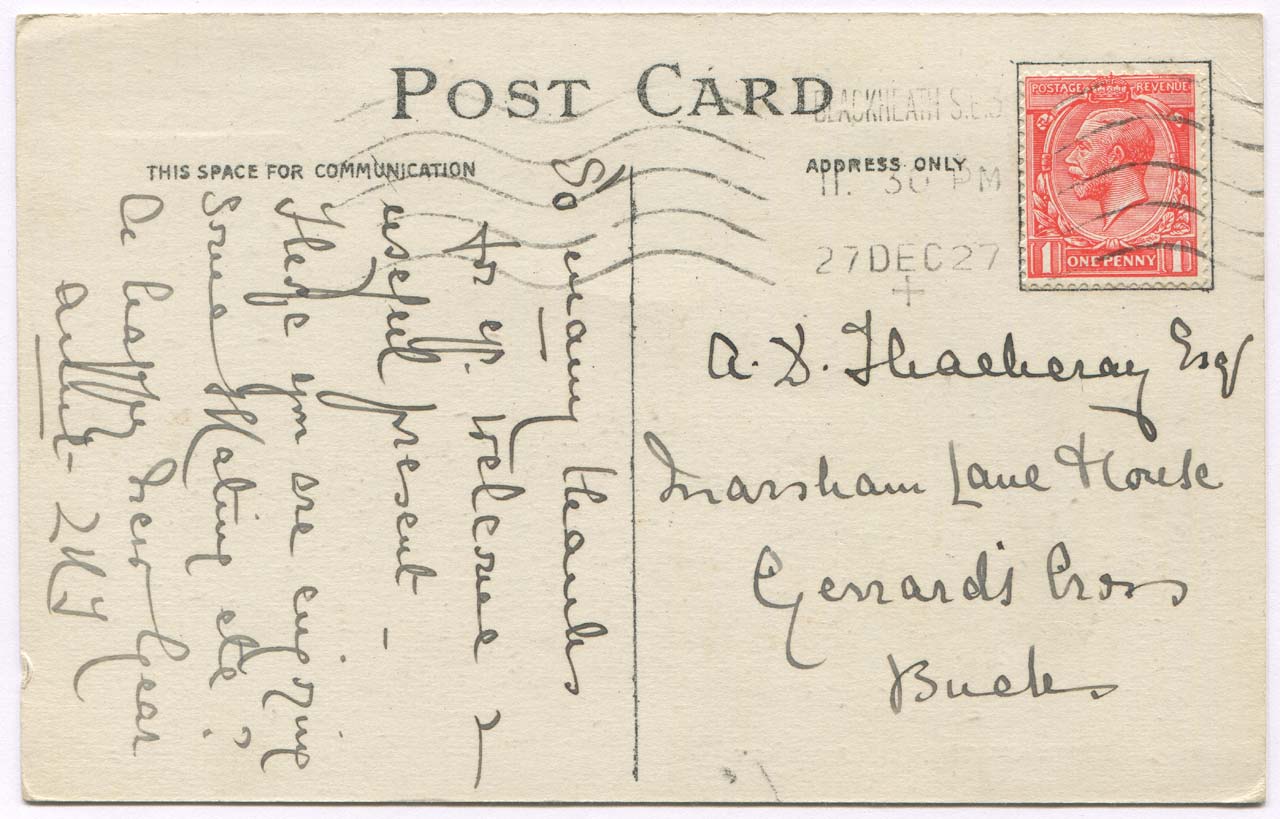 POST CARD
THIS SPACE FOR COMMUNICATION
ADDRESS ONLY
BLACKHEATH S.E.3
11. 30 PM
27 DEC 27
POSTAGE REVENUE
1 ONE PENNY 1
So many thanks
for yr. welcome &
useful present –
Hope you are enjoying
some skating etc;
A happy New Year
A. D. Thackeray Esq
Marsham Lane House
Gerrard's Cross
Bucks